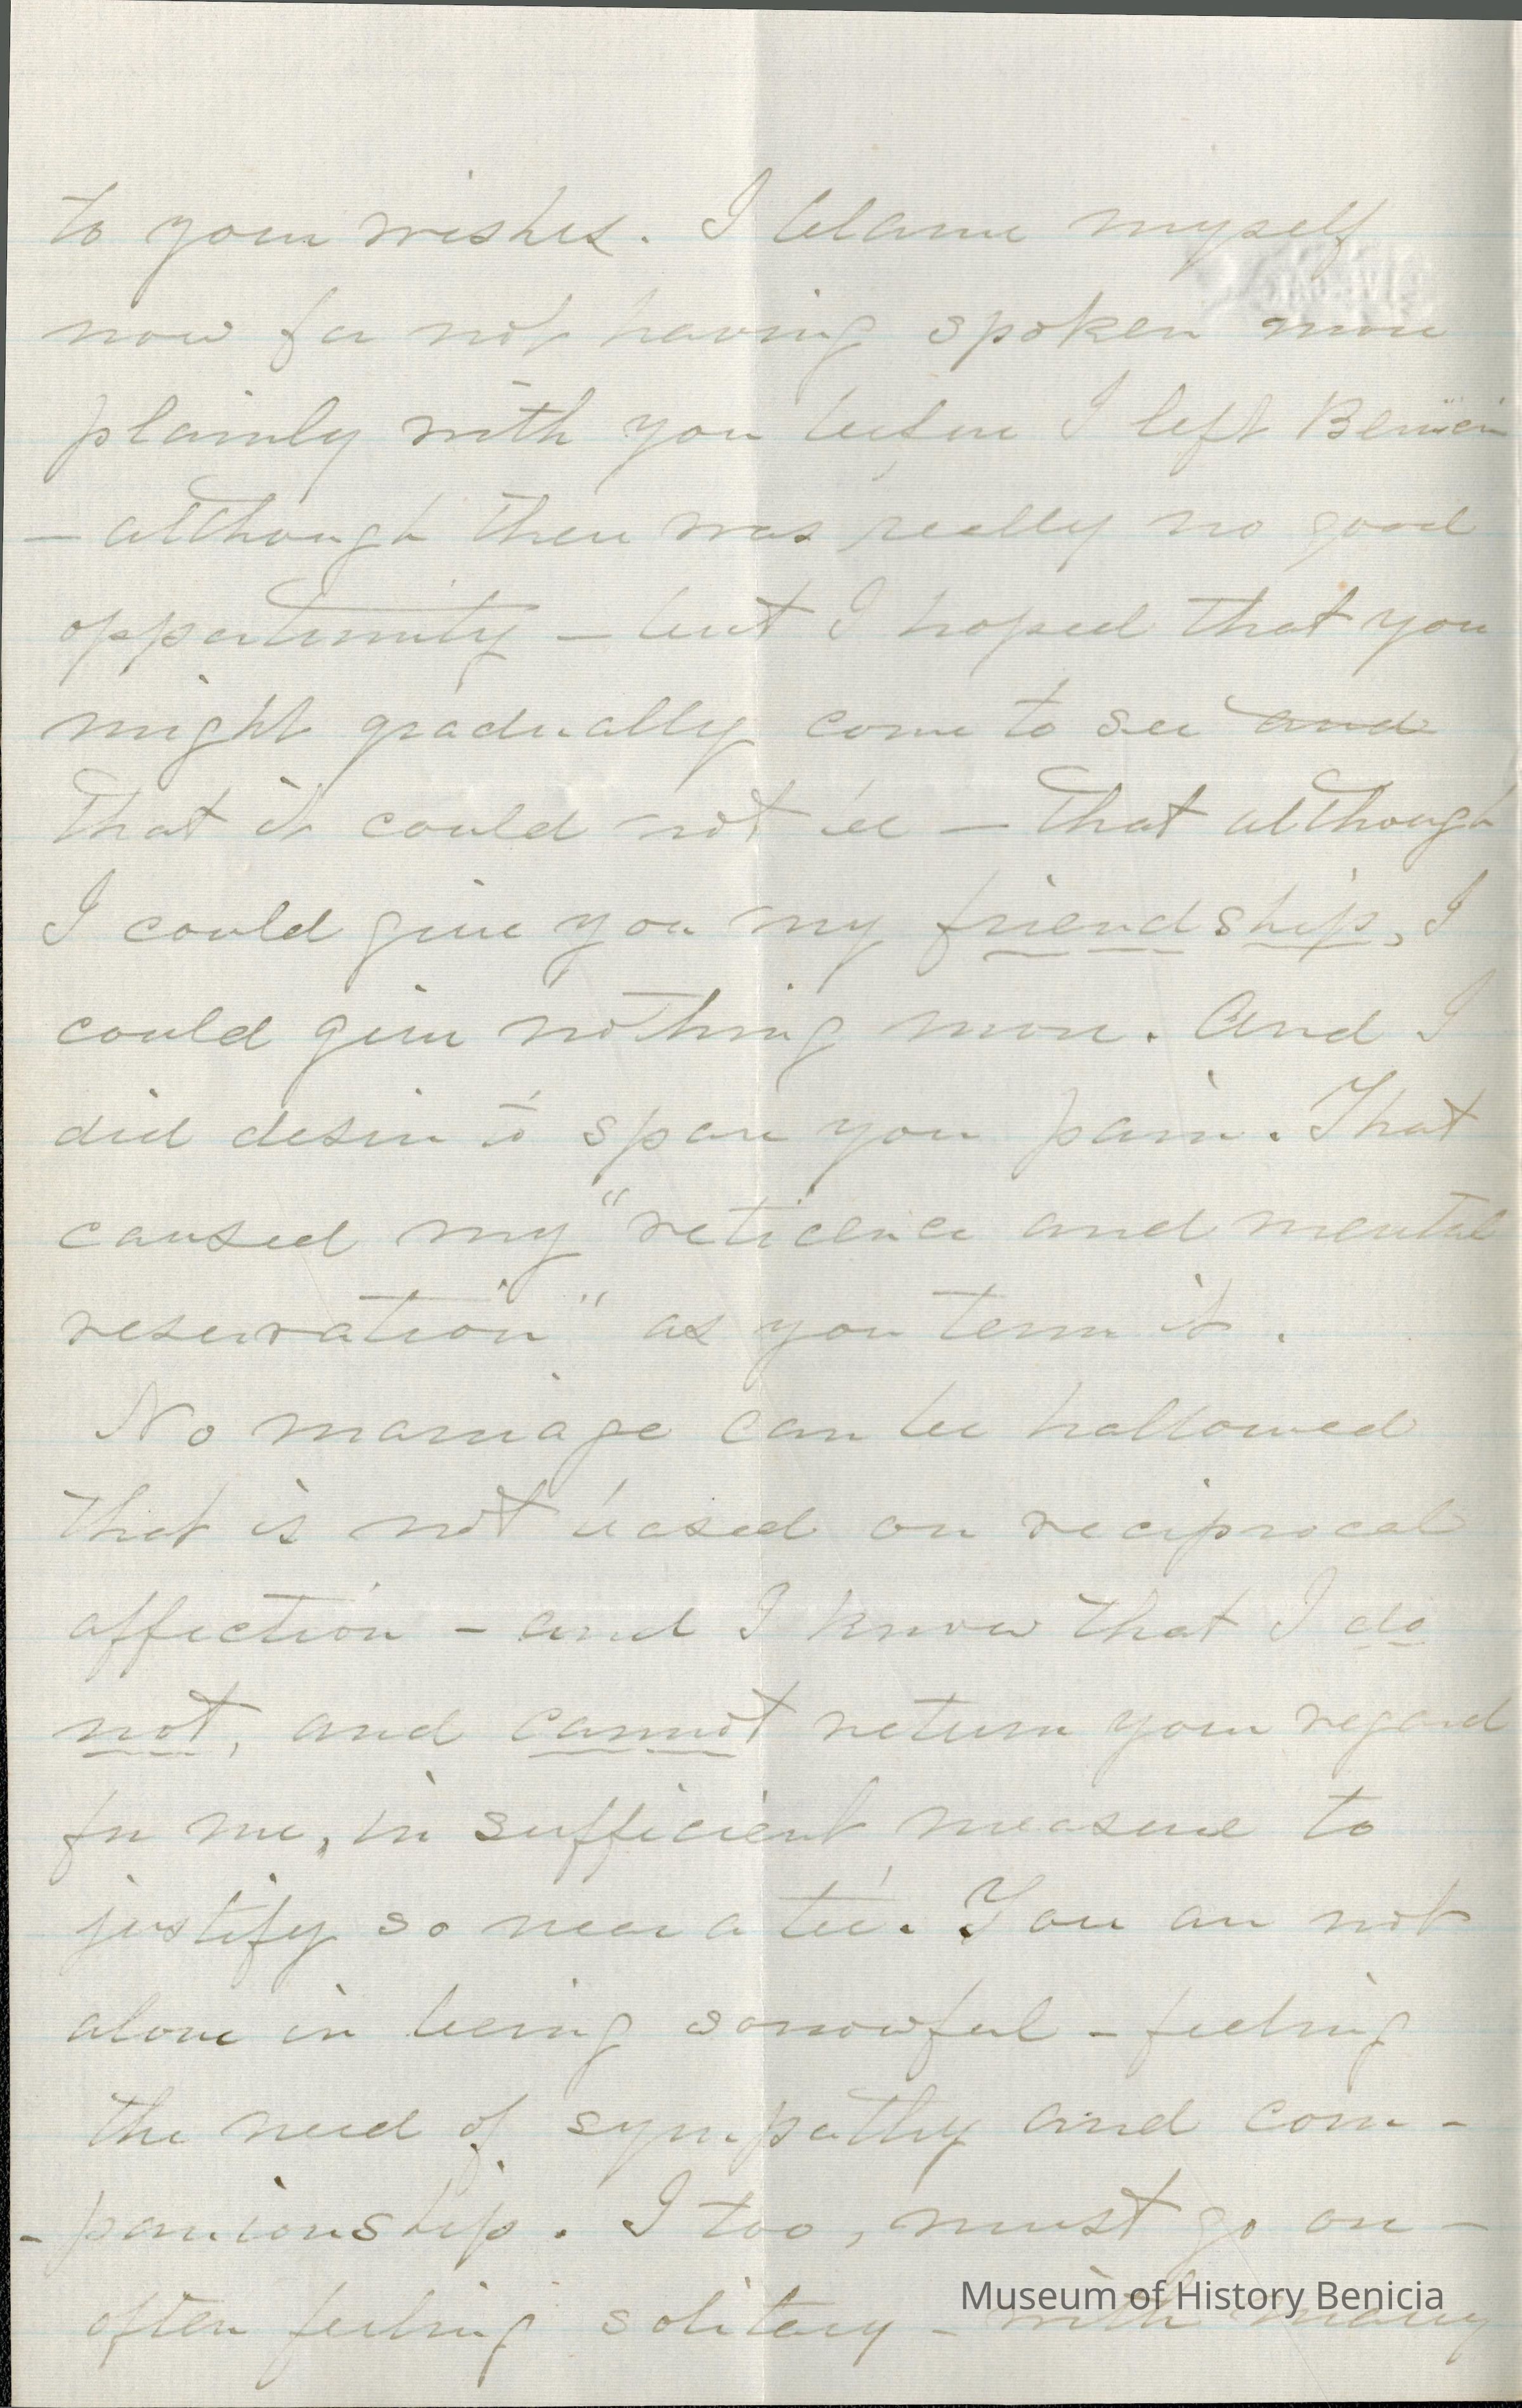 to your wishes. I blame myself
now for not having spoken more
plainly with you before I left Benicia
— although there was really no good
opportunity — but I hoped that you
might gradually come to see and
that it could not be — that although
I could give you my friendship, I
could give nothing more. And I
did desire to spare you pain. That
caused my "reticence and mental
reservation" as you term it.
No marriage can be hallowed
that is not based on reciprocal
affection - and I know that I do
not, and cannot return your regard
for me, in sufficient measure to
justify so near a tie. You are not
alone in being sorrowful - feeling
the need of sympathy and com-
-panionship. I too, must go on -
often feeling solitary - with many
Museum of History Benicia